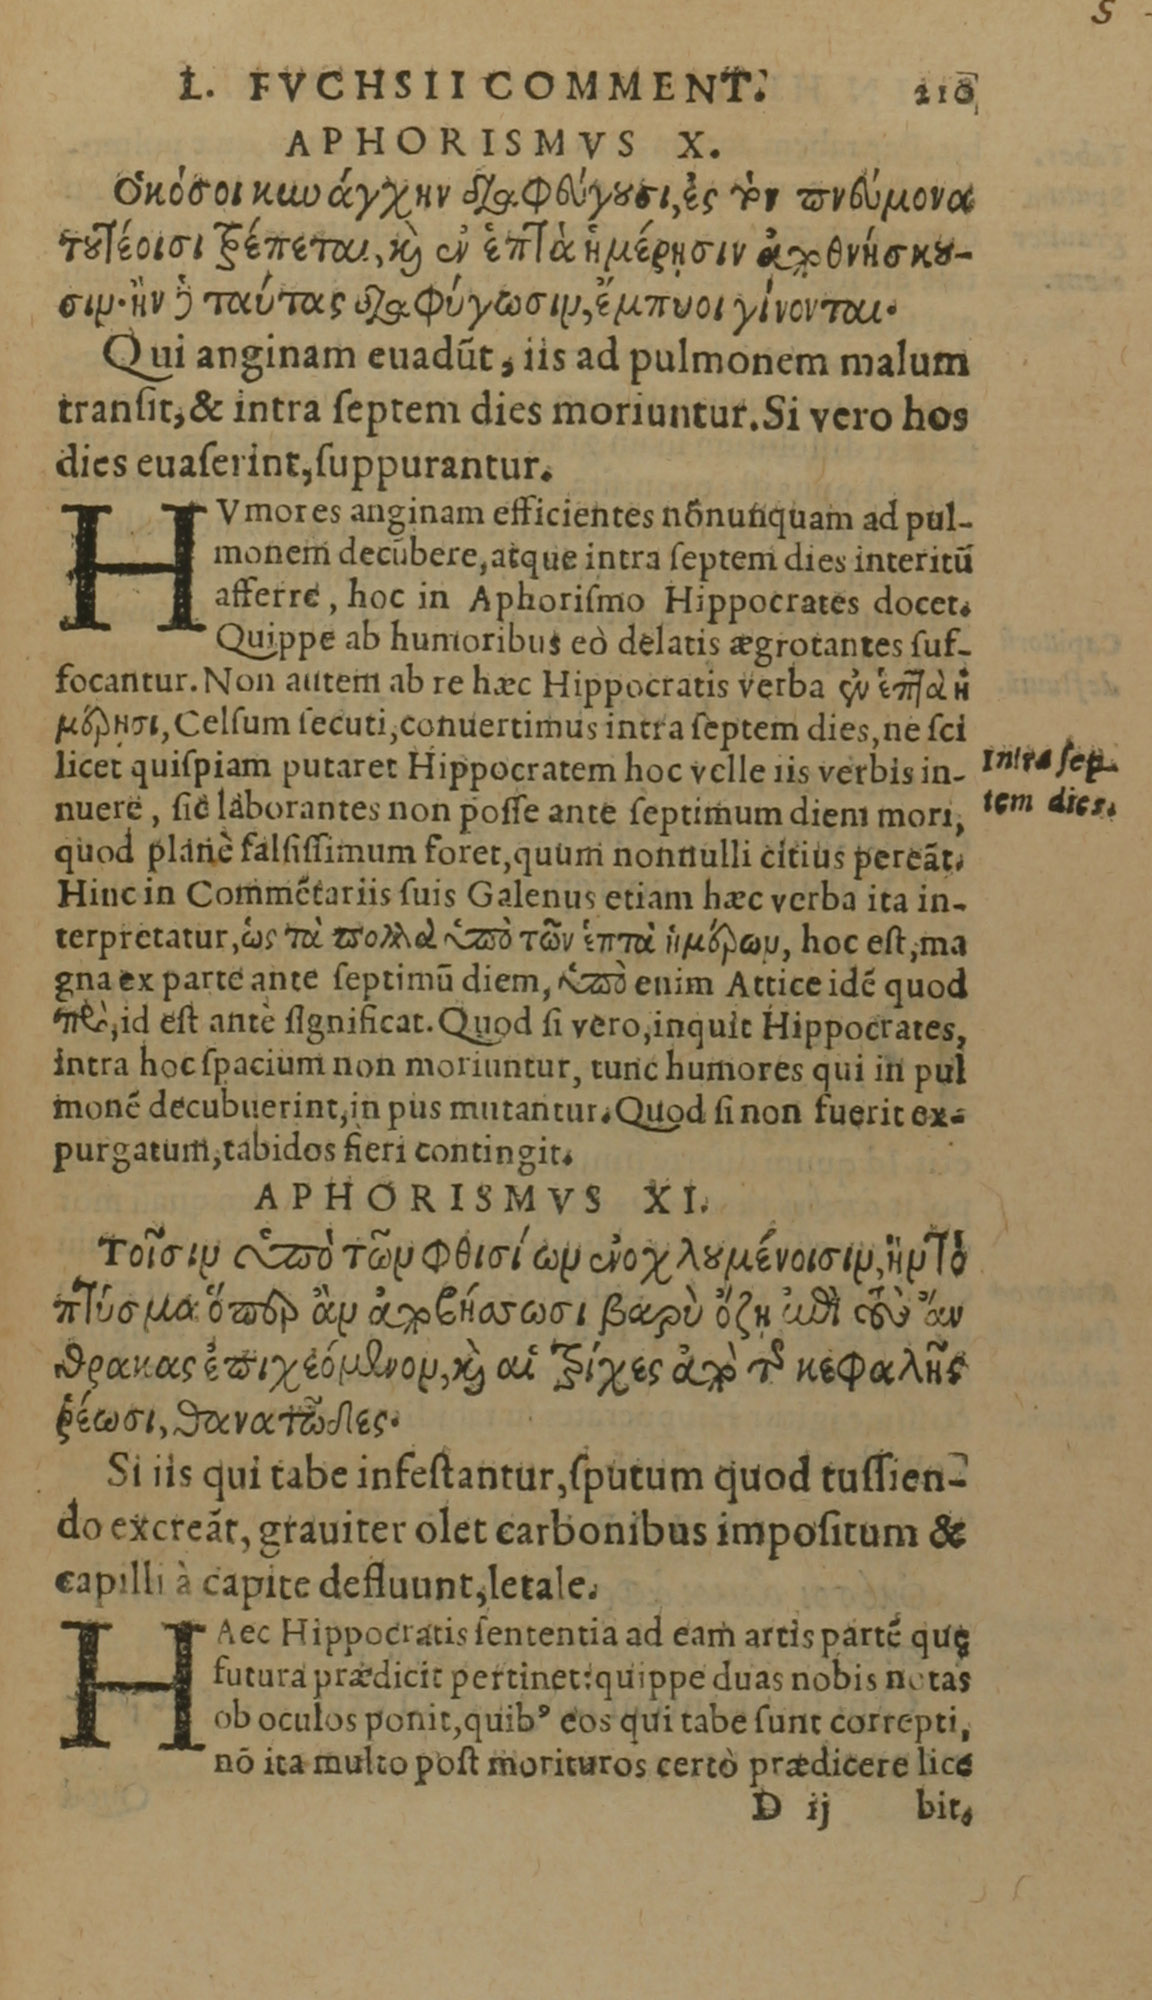 L. FVCHSII COMMENT. 210
APHORISMVS X.
Ὁκόσοι κυνάγχην διαφθύγουσι, ἐς τὸν πνθύμονα
τουτέοισι τρέπεται, καὶ ἐν ἑπτὰ ἡμέρῃσιν ἀποθνήσκου-
σιν· ἢν δὲ ταύτας διαφύγωσιν, ἔμπυοι γίνονται.
Qui anginam euadũt, iis ad pulmonem malum
tranſit, & intra ſeptem dies moriuntur. Si vero hos
dies euaſerint, ſuppurantur.
HVmores anginam efficientes nõnunquam ad pul-
monem decũbere, atque intra ſeptem dies interitũ
afferre, hoc in Aphoriſmo Hippocrates docet.
Quippe ab humoribus eò delatis ægrotantes ſuf-
focantur. Non autem ab re hæc Hippocratis verba ἐν ἑπτὰ ἡ
μέρῃσι, Celſum ſecuti, conuertimus intra ſeptem dies, ne ſci
licet quiſpiam putaret Hippocratem hoc velle iis verbis in-
Intra ſep-
nuere, ſic laborantes non poſſe ante ſeptimum diem mori,
tem dies.
quod planè falſiſſimum foret, quum nonnulli citius pereãt.
Hinc in Commẽtariis ſuis Galenus etiam hæc verba ita in-
terpretatur, ὡς τὰ πολλὰ ἀπὸ τῶν ἑπτὰ ἡμέρων, hoc eſt, ma
gna ex parte ante ſeptimũ diem, ἀπὸ enim Attice idẽ quod
πρὸ, id eſt antè ſignificat. Quod ſi vero, inquit Hippocrates,
intra hoc ſpacium non moriuntur, tunc humores qui in pul
monẽ decubuerint, in pus mutantur. Quod ſi non fuerit ex-
purgatum, tabidos fieri contingit.
APHORISMVS XI.
Τοῖσιν ἀπὸ τῶν φθισίων ἐνοχλουμένοισιν, ἢν τὸ
πτύσμα ὅπερ ἂν ἀποβήσσωσι βαρὺ ὄζῃ ἐπὶ τοὺς ἄν
θρακας ἐπιχεόμενον, καὶ αἱ τρίχες ἀπὸ τῆς κεφαλῆς
ῥέωσι, θανατῶδες.
Si iis qui tabe infeſtantur, ſputum quod tuſſien-
do excreãt, grauiter olet carbonibus impoſitum &
capilli à capite defluunt, letale.
HAec Hippocratis ſententia ad eam artis partẽ quę
futura prædicit pertinet: quippe duas nobis notas
ob oculos ponit, quibꝰ eos qui tabe ſunt correpti,
nõ ita multo poſt morituros certò prædicere lice
D ij bit.